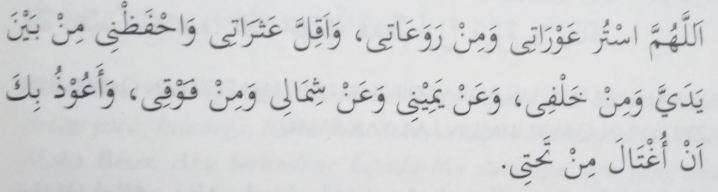 اَللّٰهُمَّ اسْتُر عَوْرَاتِى وَمِنْ رَوَعَاتِى، وَاَقِلَّ عَثَرَاتِى وَاحْفَظْنِى مِنْ بَيْنَ
يَدَيَّ وَمِنْ خَلْفِى، وَعَنْ يَمِيْنِى وَعَنْ شِمَالِى وَمِنْ فَوْقِى، وَأَعُوْذُ بِكَ
اَنْ أُغْتَالَ مِنْ تَحْتِى.